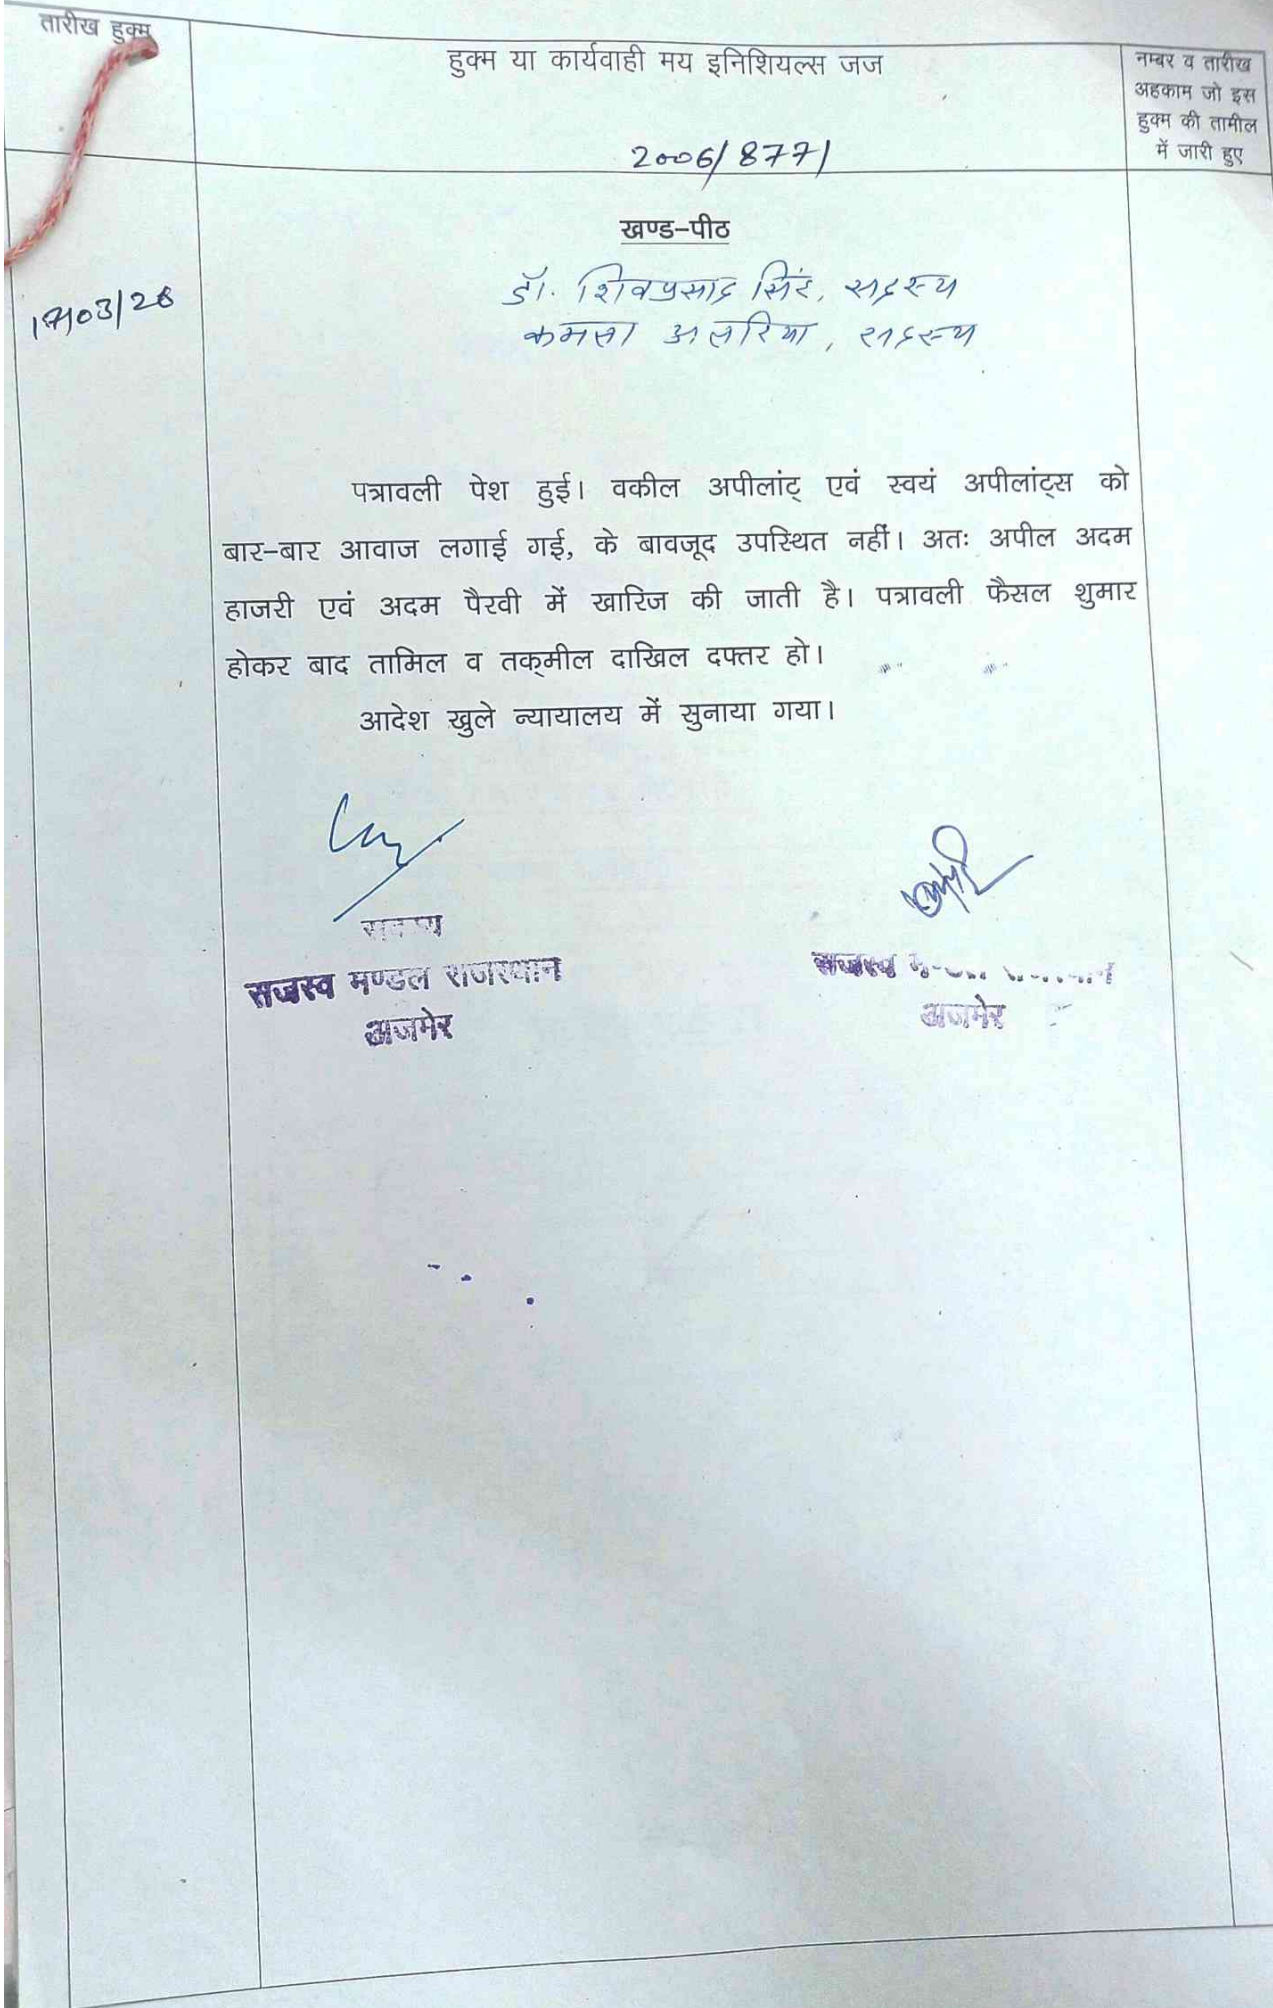 तारीख हुक्म
हुक्म या कार्यवाही मय इनिशियल्स जज
नम्बर व तारीख
अहकाम जो इस
हुक्म की तामील
में जारी हुए
2006/8771
खण्ड-पीठ
17/03/26
डॉ. शिवप्रसाद सिंह, सदस्य
कमला अलारिया, सदस्य
पत्रावली पेश हुई। वकील अपीलांट् एवं स्वयं अपीलांट्स को
बार-बार आवाज लगाई गई, के बावजूद उपस्थित नहीं। अतः अपील अदम
हाजरी एवं अदम पैरवी में खारिज की जाती है। पत्रावली फैसल शुमार
होकर बाद तामिल व तक्मील दाखिल दफ्तर हो।
आदेश खुले न्यायालय में सुनाया गया।
सदस्य
राजस्व मण्डल राजस्थान
अजमेर
राजस्व
अजमेर